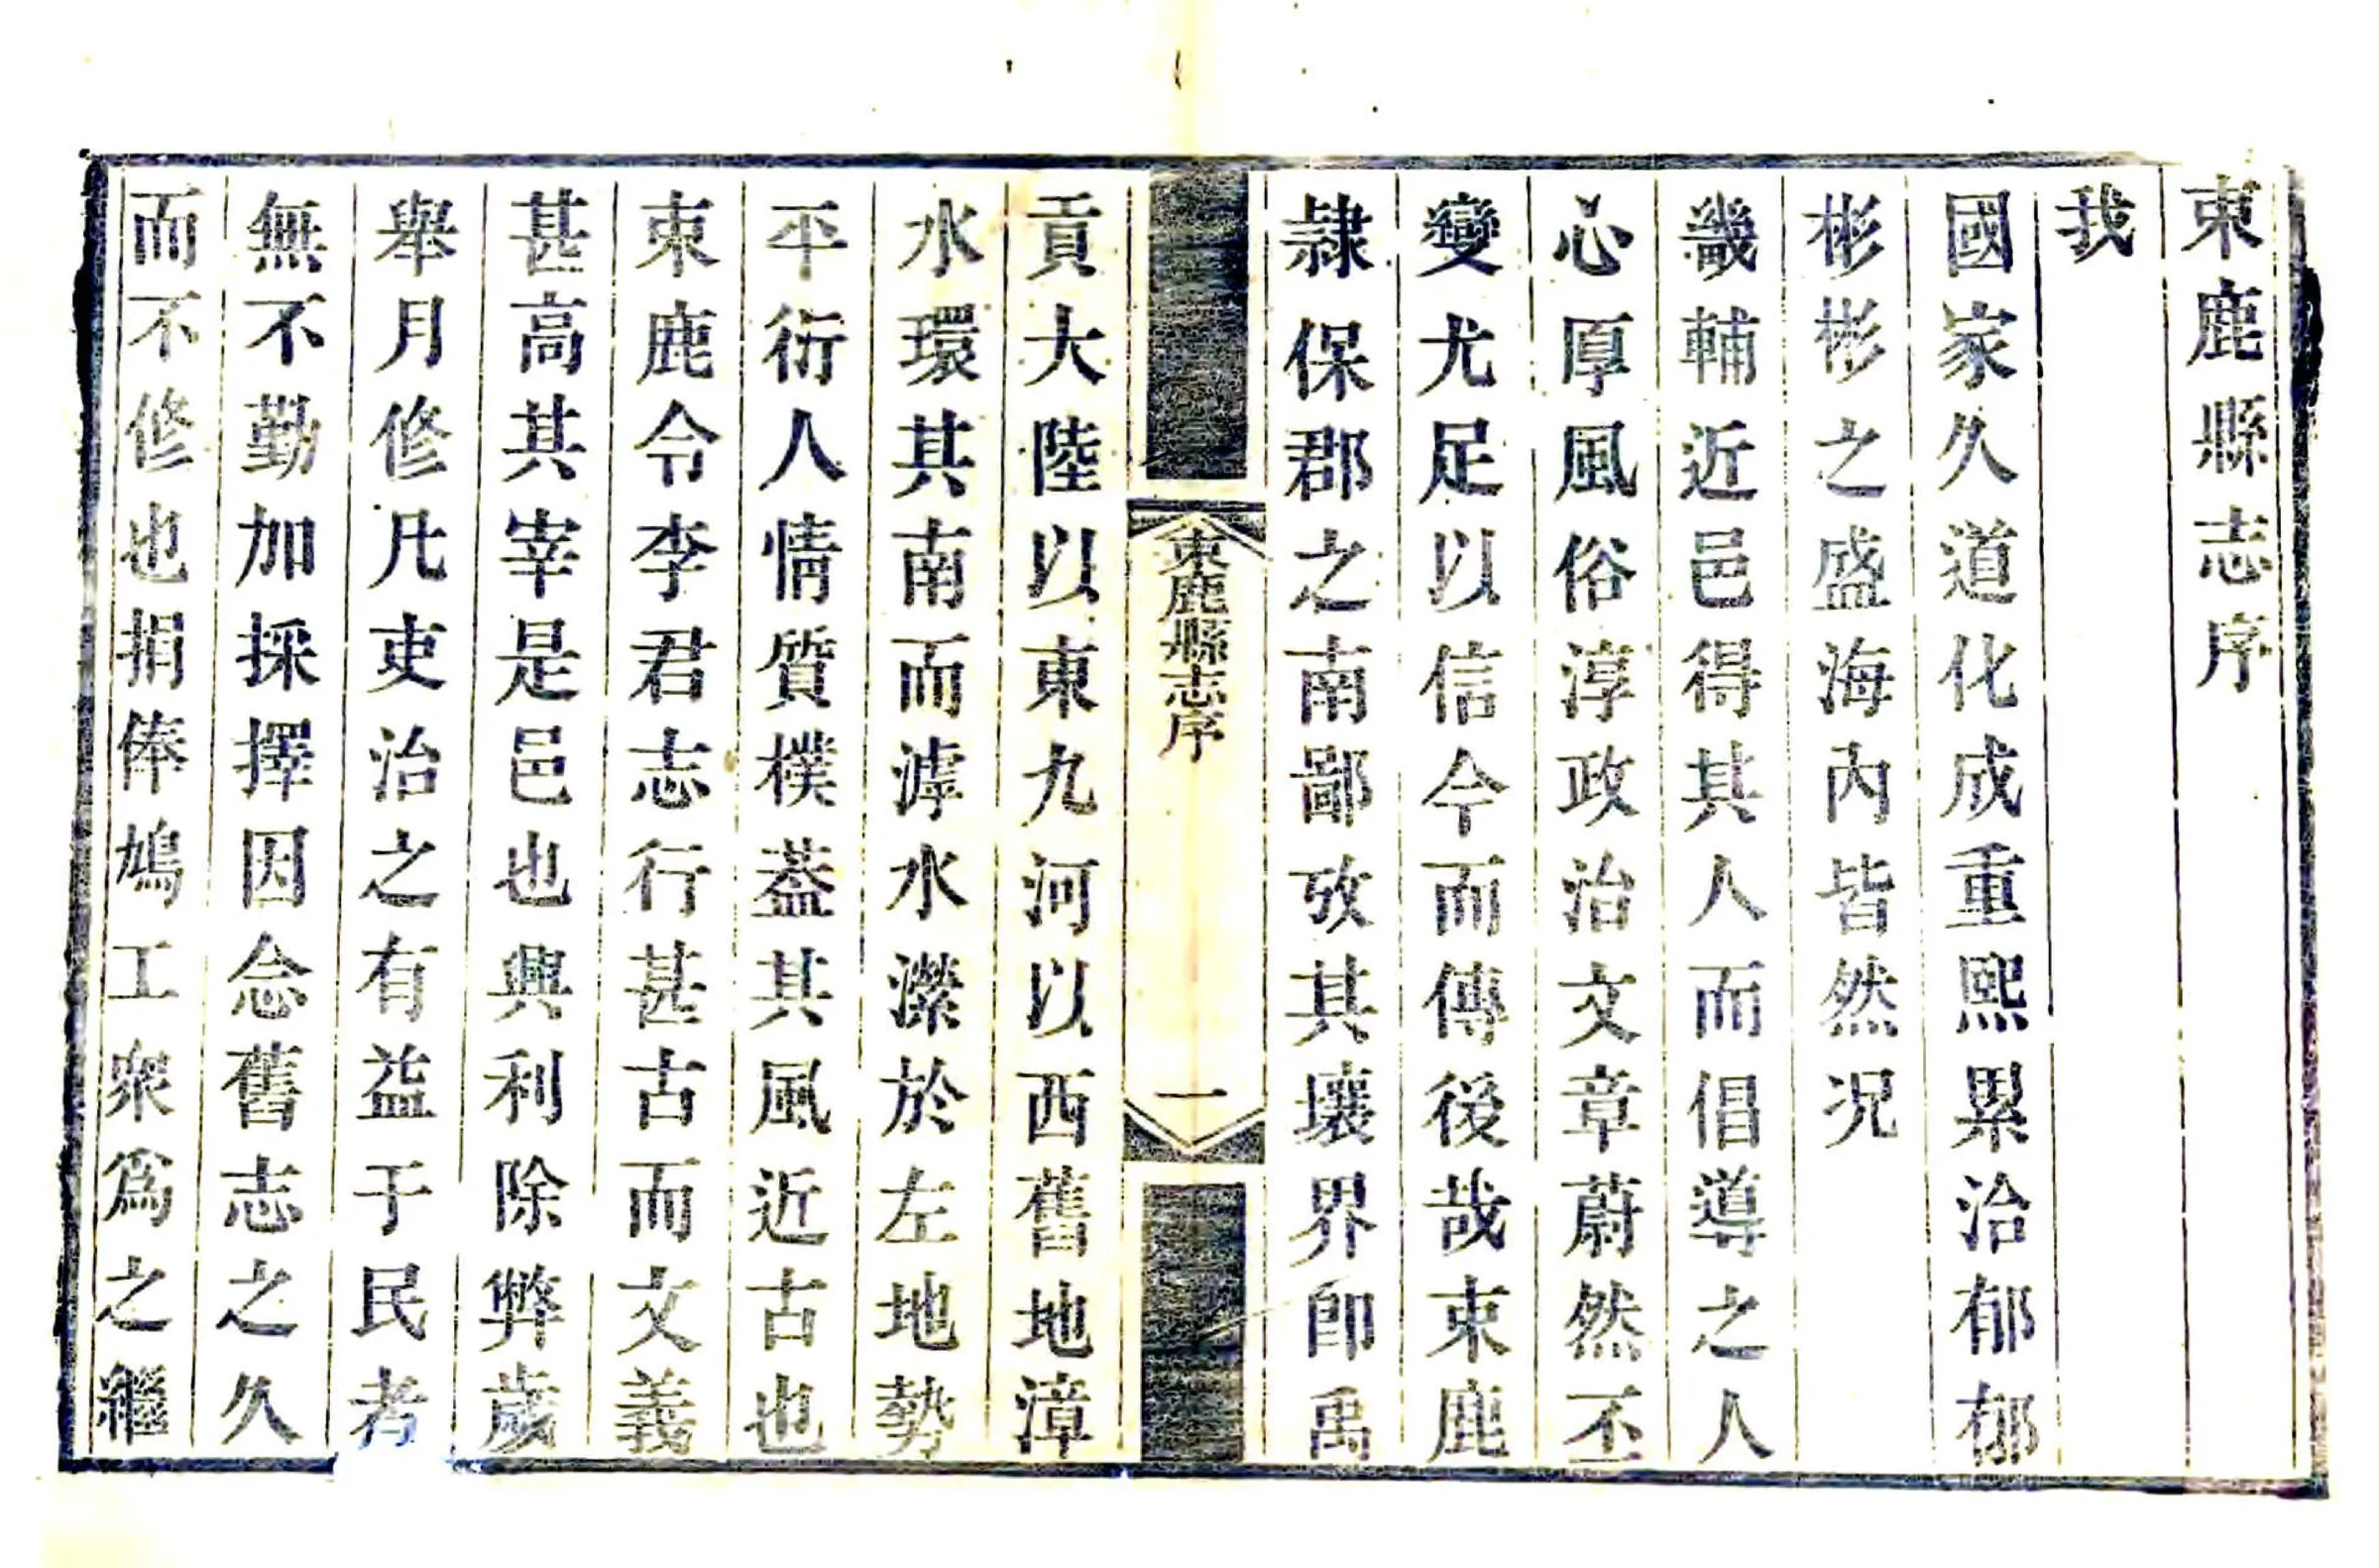 束鹿縣志序
我
國家久道化成重熙累洽郁郁
彬彬之盛海內皆然况
畿輔近邑得其人而倡導之人
心厚風俗淳政治文章蔚然丕
變尤足以信今而傳後哉束鹿
隷保郡之南鄙攷其壤界卽禹
束鹿縣志序
一
貢大陸以東九河以西舊地漳
水環其南而滹水瀠於左地勢
平衍人情質樸葢其風近古也
束鹿令李君志行甚古而文義
甚高其宰是邑也興利除弊歲
舉月修凡吏治之有益于民者
無不勤加採擇因念舊志之久
而不修也捐俸鳩工衆爲之繼